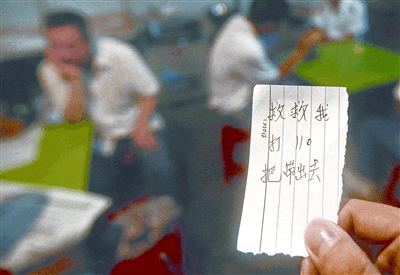 Date:
救救我
打110
把带出去